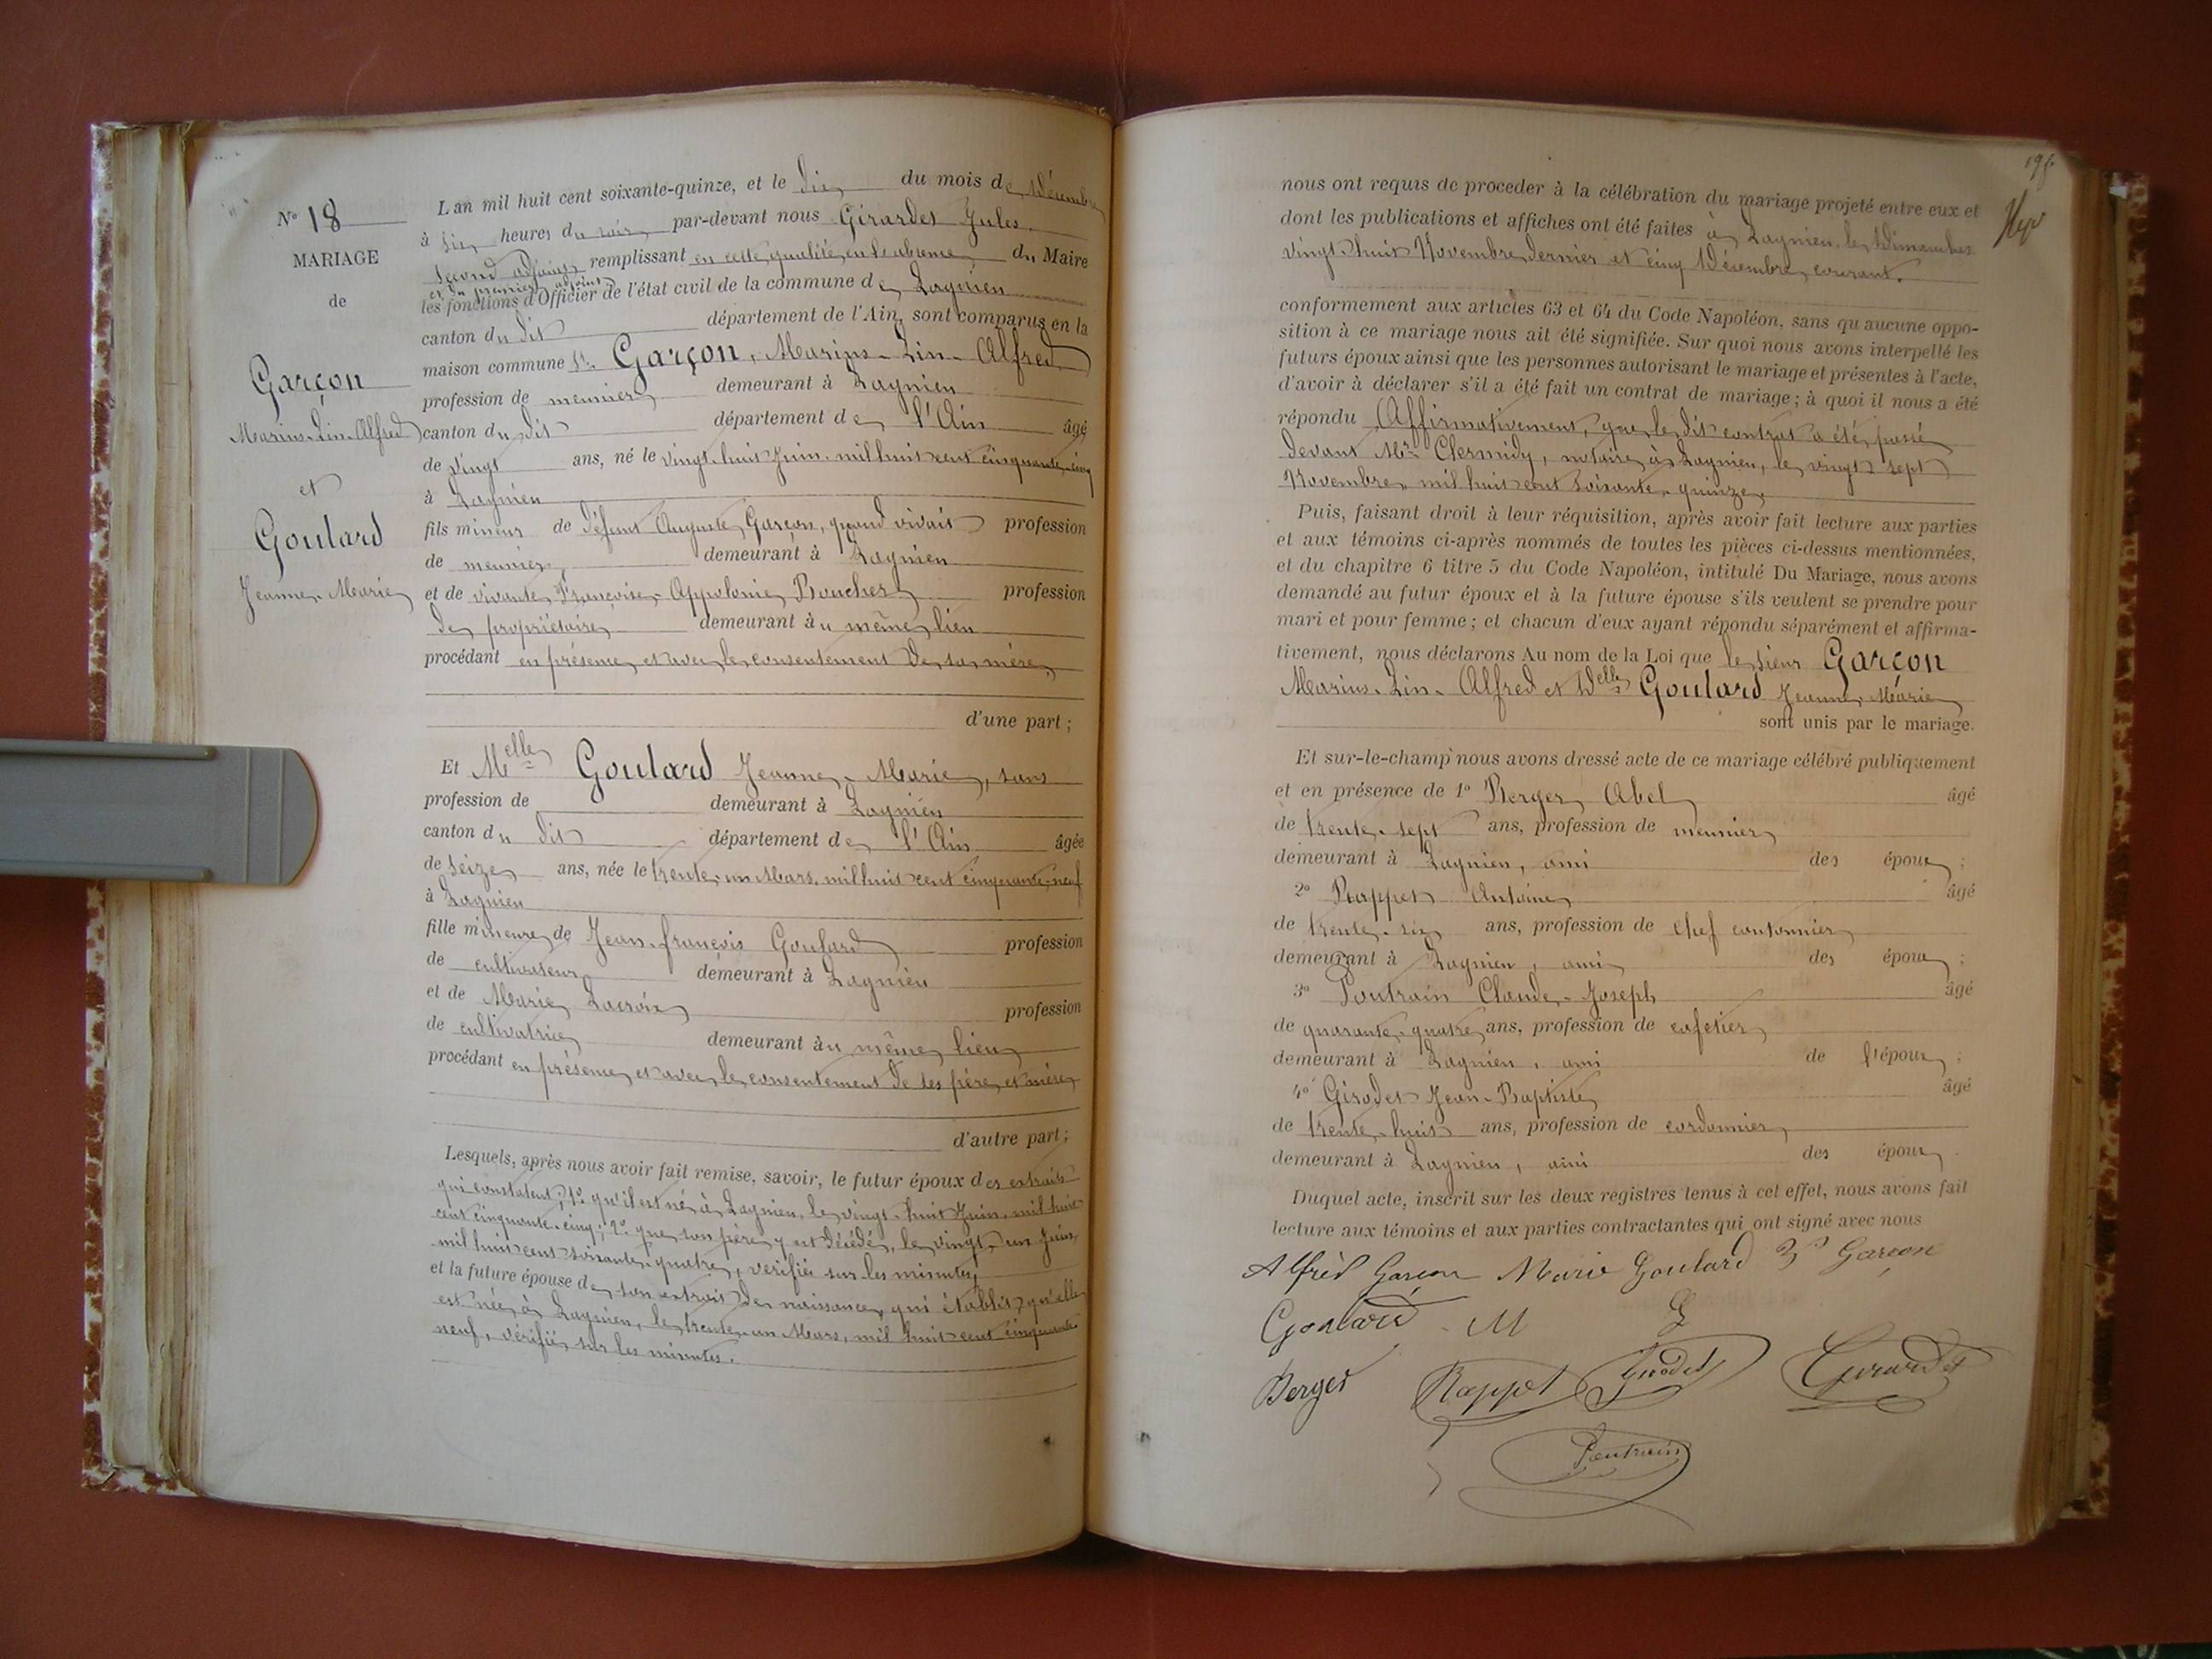 N° 18
MARIAGE
de
Garçon
Marius-Lin-Alfred
et
Goulard
Jeanne-Marie
L'an mil huit cent soixante-quinze, et le dix du mois de Décembre
à six heures du soir par-devant nous Girardet Jules
second adjoint remplissant en cette qualité, en l'absence du Maire
et du premier adjoint
les fonctions d'Officier de l'état civil de la commune de Lagnieu
canton du dit département de l'Ain, sont comparus en la
maison commune Sr. Garçon, Marius-Lin-Alfred
profession de meunier demeurant à Lagnieu
canton du dit département de l'Ain âgé
de vingt ans, né le vingt-huit Juin mil huit cent cinquante-cinq
à Lagnieu
fils mineur de défunt Auguste Garçon, quand vivait profession
de meunier demeurant à Lagnieu
et de vivante Françoise-Appolonie Boucher profession
de propriétaire demeurant au même lieu
procédant en présence et avec le consentement de sa mère,
d'une part ;
Et Melle Goulard Jeanne-Marie, sans
profession de demeurant à Lagnieu
canton du dit département de l'Ain âgée
de seize ans, née le trente-un Mars mil huit cent cinquante-neuf
à Lagnieu
fille mineure de Jean-françois Goulard profession
de cultivateur demeurant à Lagnieu
et de Marie Lacroix profession
de cultivatrice demeurant au même lieu
procédant en présence et avec le consentement de ses père et mère
d'autre part ;
Lesquels, après nous avoir fait remise, savoir, le futur époux des extraits
qui constatent, 1° qu'il est né à Lagnieu, le vingt-huit Juin, mil huit
cent cinquante-cinq ; 2° que son père y est décédé, le vingt-un Juin,
mil huit cent soixante-quatre, vérifiés sur les minutes,
et la future épouse de son extrait de naissance, qui établit qu'elle
est née à Lagnieu, le trente-un Mars, mil huit cent cinquante-
neuf, vérifié sur les minutes.
nous ont requis de proceder à la célébration du mariage projeté entre eux et
dont les publications et affiches ont été faites à Lagnieu, les Dimanches
vingt-huit Novembre dernier et cinq Décembre courant.
conformement aux articles 63 et 64 du Code Napoléon, sans qu'aucune oppo-
sition à ce mariage nous ait été signifiée. Sur quoi nous avons interpellé les
futurs époux ainsi que les personnes autorisant le mariage et présentes à l'acte,
d'avoir à déclarer s'il a été fait un contrat de mariage ; à quoi il nous a été
répondu Affirmativement, que le dit contrat a été passé
devant Me Clermidy, notaire à Lagnieu, le vingt-sept
Novembre, mil huit cent soixante-quinze.
Puis, faisant droit à leur réquisition, après avoir fait lecture aux parties
et aux témoins ci-après nommés de toutes les pièces ci-dessus mentionnées,
et du chapitre 6 titre 5 du Code Napoléon, intitulé Du Mariage, nous avons
demandé au futur époux et à la future épouse s'ils veulent se prendre pour
mari et pour femme ; et chacun d'eux ayant répondu séparément et affirma-
tivement, nous déclarons Au nom de la Loi que le sieur Garçon
Marius-Lin-Alfred et Delle Goulard Jeanne-Marie
sont unis par le mariage.
Et sur-le-champ nous avons dressé acte de ce mariage célébré publiquement
et en présence de 1° Berger Abel âgé
de trente-sept ans, profession de meunier
demeurant à Lagnieu, ami des époux ;
2° Rappet Antoine âgé
de trente-six ans, profession de chef cantonnier
demeurant à Lagnieu, ami des époux ;
3° Poutrain Claude-Joseph âgé
de quarante-quatre ans, profession de cafetier
demeurant à Lagnieu, ami de l'époux ;
4° Girodet Jean-Baptiste âgé
de trente-huit ans, profession de cordonnier
demeurant à Lagnieu, ami des époux.
Duquel acte, inscrit sur les deux registres tenus à cet effet, nous avons fait
lecture aux témoins et aux parties contractantes qui ont signé avec nous
Alfred Garçon Marie Goulard Garçon
Goulard M
Berger Rappet Girodet Girardet
Poutrain